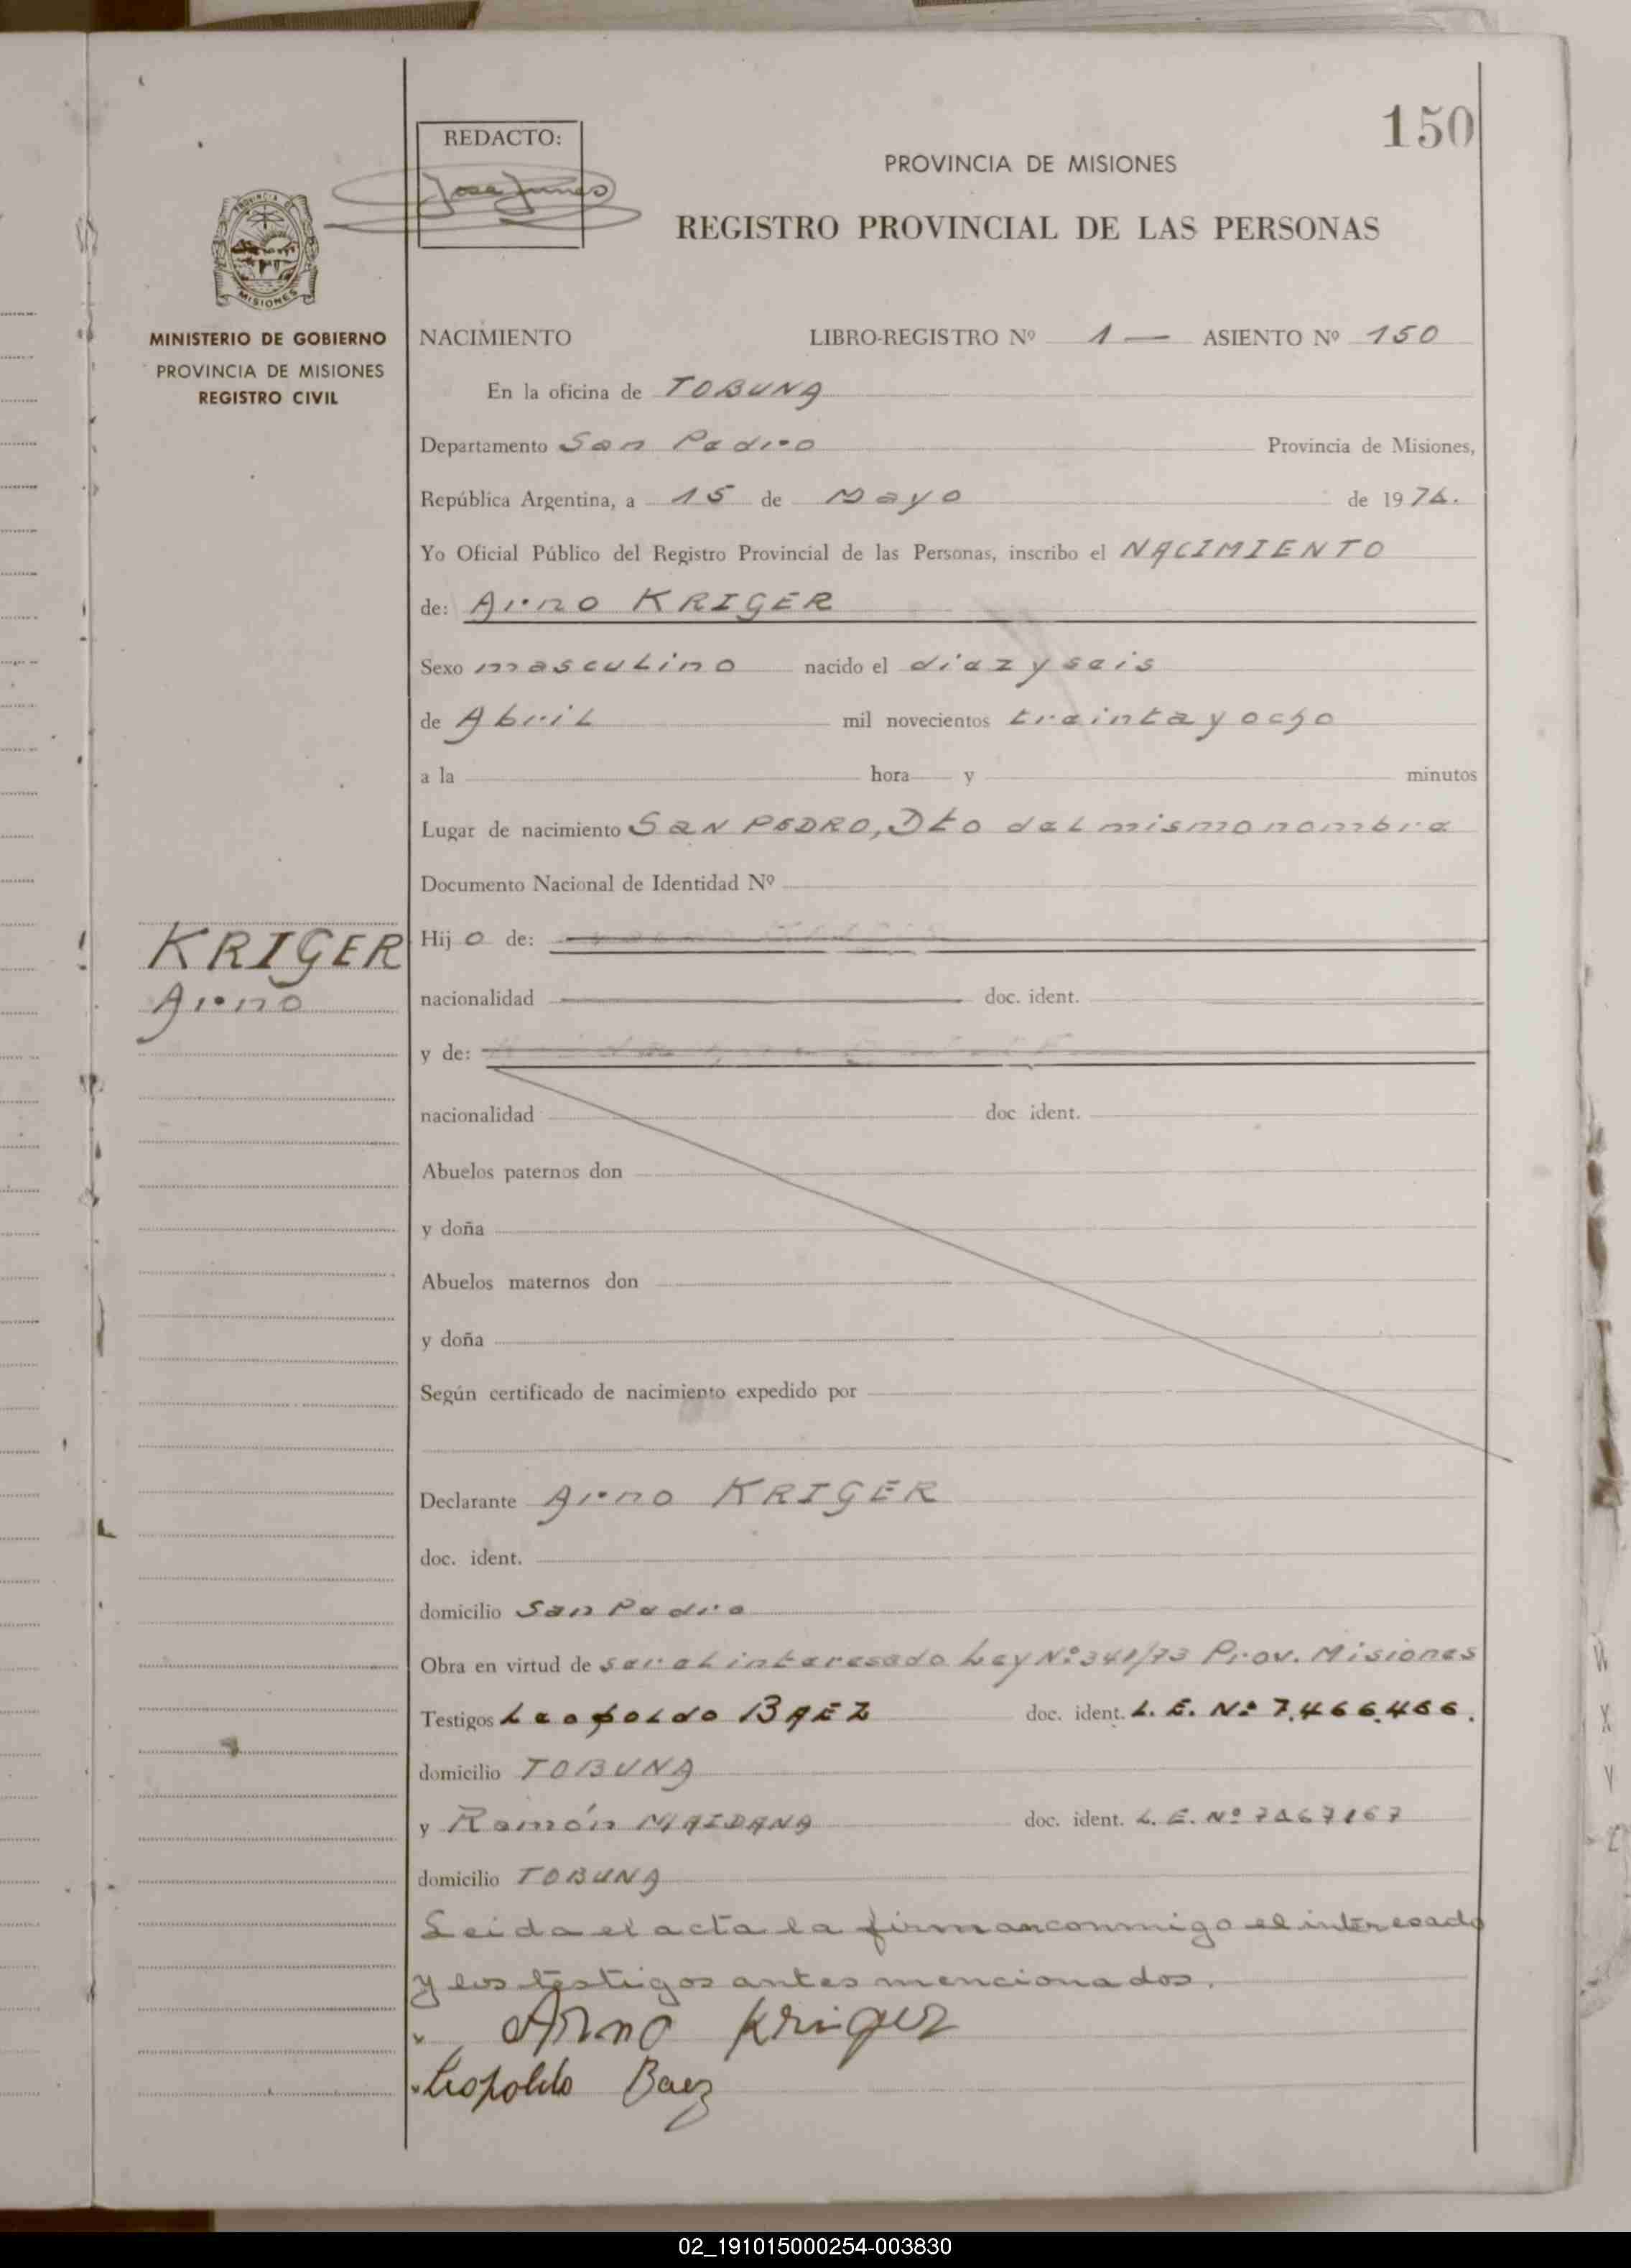 150
REDACTO:
PROVINCIA DE MISIONES
REGISTRO PROVINCIAL DE LAS PERSONAS
PROVINCIA DE
MISIONES
MINISTERIO DE GOBIERNO
PROVINCIA DE MISIONES
REGISTRO CIVIL
NACIMIENTO LIBRO-REGISTRO Nº 1 — ASIENTO Nº 150
En la oficina de TOBUNA
Departamento San Pedro Provincia de Misiones,
República Argentina, a 15 de Mayo de 1974.
Yo Oficial Público del Registro Provincial de las Personas, inscribo el NACIMIENTO
de: Arno KRIGER
Sexo masculino nacido el diez y seis
de Abril mil novecientos treinta y ocho
a la hora y minutos
Lugar de nacimiento San PEDRO, Dto del mismo nombre
Documento Nacional de Identidad Nº
KRIGER
Arno
Hijo de:
nacionalidad doc. ident.
y de:
nacionalidad doc ident.
Abuelos paternos don
y doña
Abuelos maternos don
y doña
Según certificado de nacimiento expedido por
Declarante Arno KRIGER
doc. ident.
domicilio San Pedro
Obra en virtud de ser el interesado Ley Nº 341/73 Prov. Misiones
Testigos Leopoldo BAEZ doc. ident. L. E. Nº 7.466.466.
domicilio TOBUNA
y Ramón MAIDANA doc. ident. L. E. Nº 7467167
domicilio TOBUNA
Leida el acta la firman conmigo el interesado
y los testigos antes mencionados.
Arno Kriger
Leopoldo Baez
02_191015000254-003830